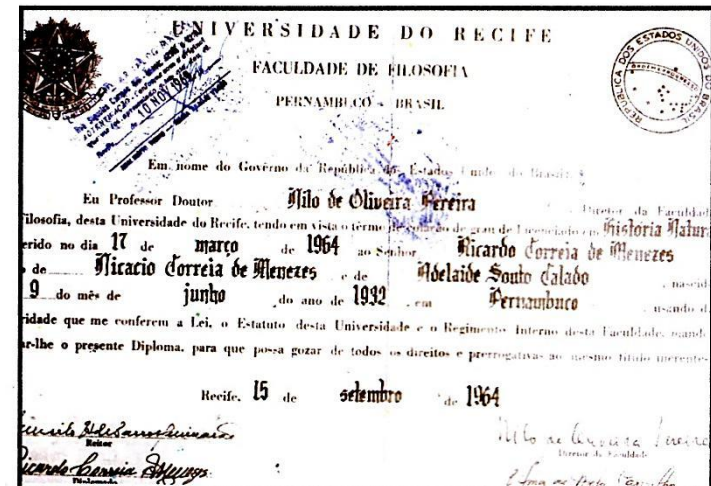 UNIVERSIDADE DO RECIFE
FACULDADE DE FILOSOFIA
PERNAMBUCO - BRASIL
REPÚBLICA DOS ESTADOS UNIDOS DO BRASIL
10 NOV
Em nome do Govêrno da República dos Estados Unidos do Brasil
Eu Professor Doutor Nilo de Oliveira Pereira Diretor da Faculdad
Filosofia, desta Universidade do Recife, tendo em vista o têrmo de colação de grau de Licenciado em História Natura
erido no dia 17 de março de 1964 ao Senhor Ricardo Correia de Menezes
o de Nicacio Correia de Menezes e de Adelaide Souto Calado , nascid
9 do mês de junho do ano de 1932 em Pernambuco , usando d
ridade que me conferem a Lei, o Estatuto desta Universidade e o Regimento Interno desta Faculdade, mand
ar-lhe o presente Diploma, para que possa gozar de todos os direitos e prerrogativas ao mesmo título inerentes
Recife, 15 de setembro de 1964
Reitor
Nilo de Oliveira Pereira
Diretor da Faculdade
Ricardo Correia
Diplomado